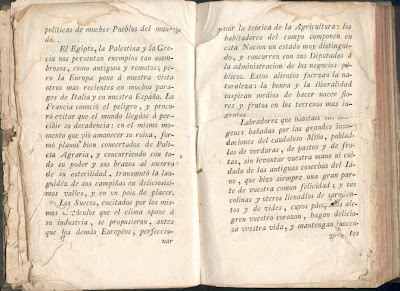 políticas de muchos Pueblos del mun-
do.
El Egipto, la Palestina y la Gre-
cia nos presentan exemplos tan asom-
brosos, como antiguos y remotos; pe-
ro la Europa pone á nuestra vista
otros mas recientes en muchos para-
ges de Italia y en nuestra España. La
Francia conoció el peligro, y procu-
ró evitar que el mundo llegáse á per-
cibir su decadencia: en el mismo mo-
mento que vió amanecer su ruina, for-
mó planos bien concertados de Poli-
cia Agraria, y concurriendo con to-
do su poder y sus brazos al socorro
de su esterilidad, transmutó la lan-
guidéz de sus campiñas en deliciosísi-
mos valles, y en un pais de placer.
Los Suecos, excitados por los mis-
mos obstáculos que el clima opone á
su industria, se propusieron, antes
que los demás Européos, perfeccio-
nar
nar la teorica de la Agricultura: los
habitadores del campo componen en
esta Nacion un estado muy distingui-
do, y concurren con sus Diputados á
la administracion de los negocios pú-
blicos. Estos alientos fuerzan la na-
turaleza: la honra y la liberalidad
inspiran medios de hacer nacer flo-
res y frutos en los terrenos mas in-
gratos.
Labradores que habitais sus már-
genes bañadas por las grandes inun-
daciones del caudaloso Miño, pobla-
das de verduras, de pastos y de fru-
tas, sin levantar vuestra mano ni cui-
dado de las antiguas cosechas del Li-
no, que hizo siempre una gran par-
te de vuestra comun felicidad; y sus
colinas y oteros llenadlos de sarmien-
tos y de vides, cuyos pámpanos ale-
gren vuestro corazon, hagan delicio-
sa vuestra vida, y mantengan inocen-
tes